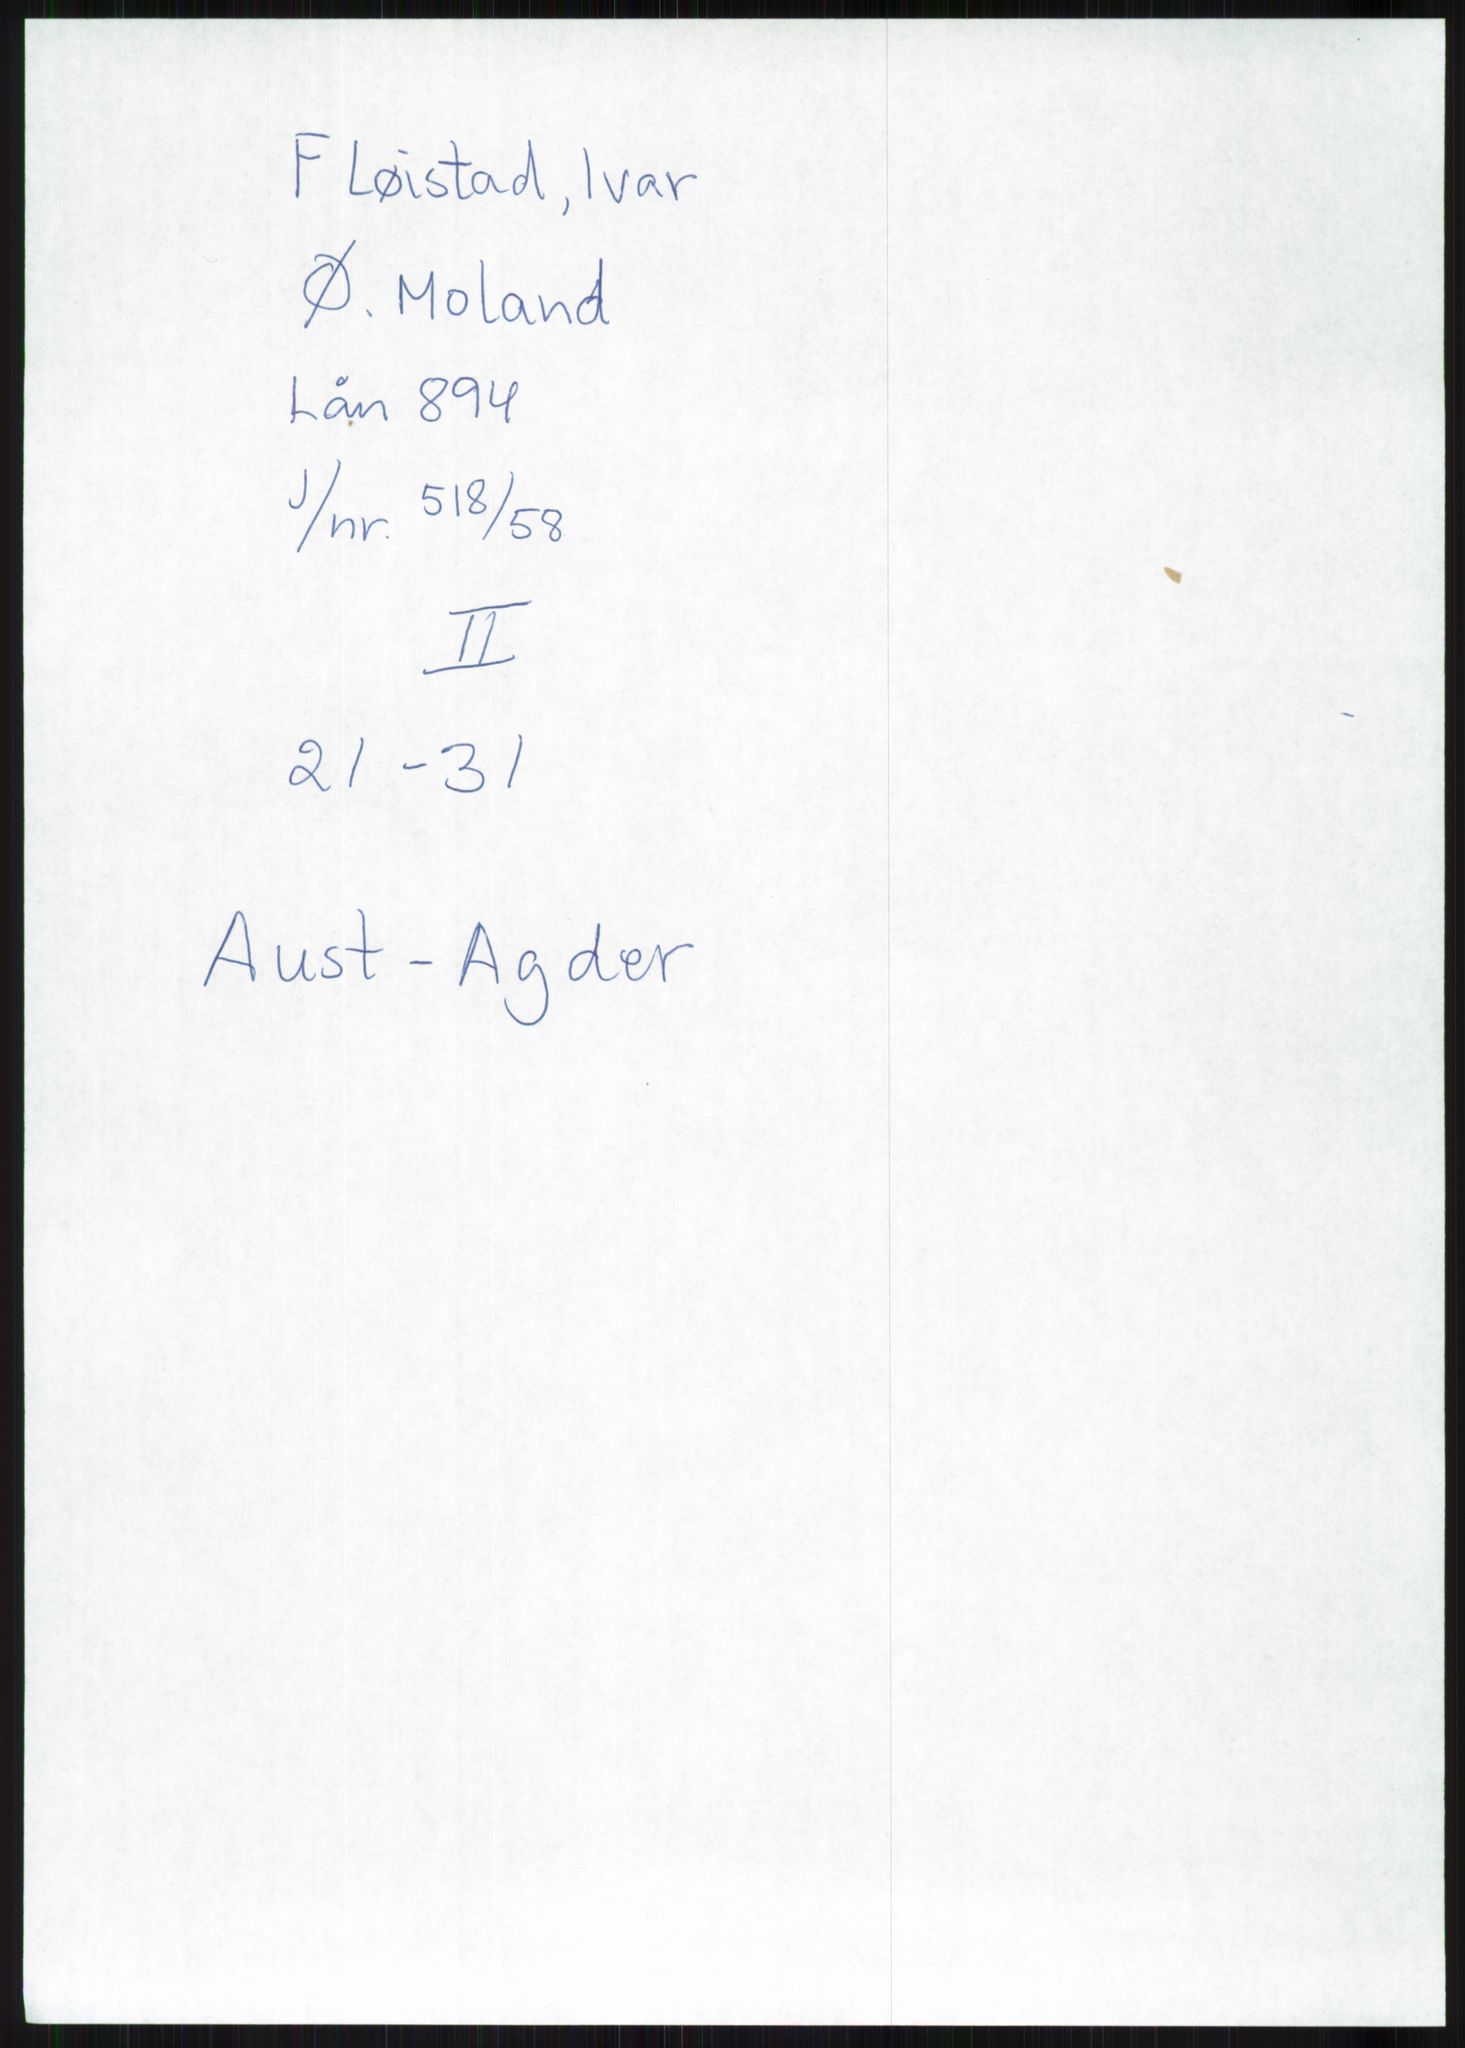 Fløistad, Ivar
Ø. Moland
Lån 894
J/nr. 518/58
II
21-31
Aust-Agder